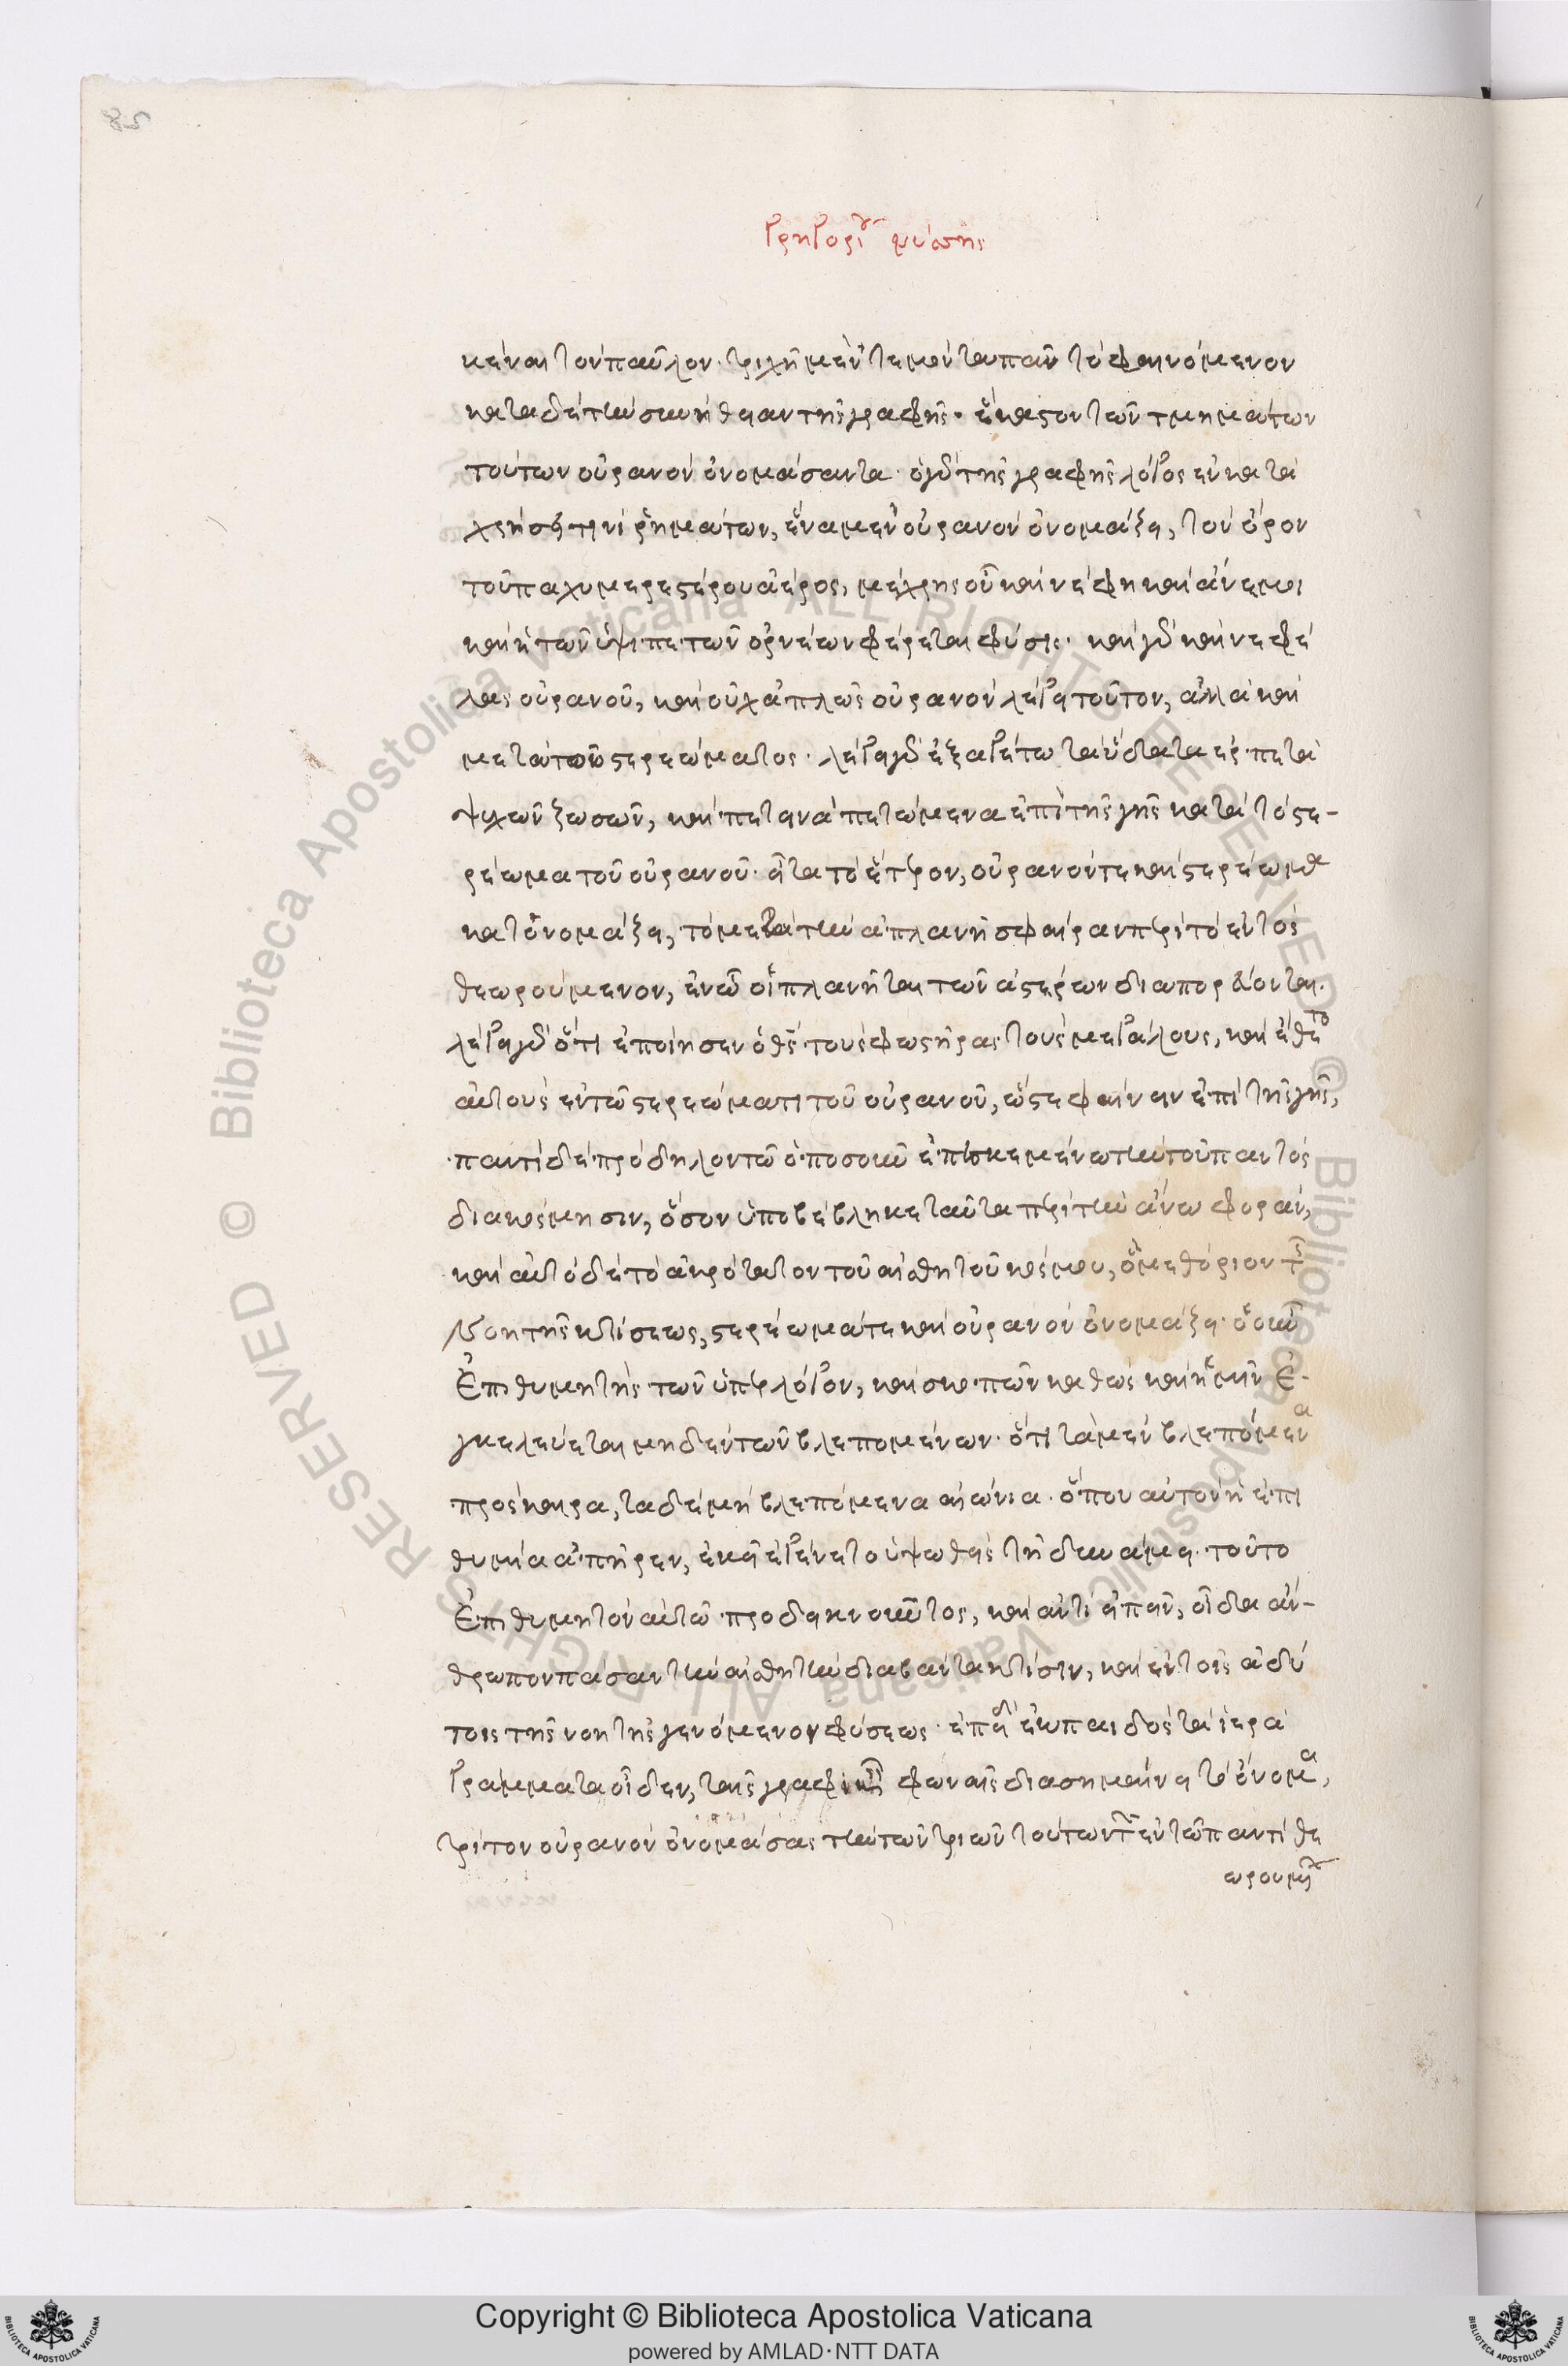 85
Γρηγορίου νύσσης
κέναι τὸν παῦλον· τριχῆ μὲν τεμόντα πᾶν τὸ φαινόμενον
κατὰ δὲ τὴν συνήθειαν τῆς γραφῆς· ἕκαστον τῶν τμημάτων
τούτων οὐρανὸν ὀνομάσαντα· ὁ γὰρ τῆς γραφῆς λόγος ἐν κατα
χρήσει τινὶ ῥημάτων, ἕνα μὲν οὐρανὸν ὀνομάζει, τὸν ὅρον
τοῦ παχυμερεστέρου ἀέρος, μέχρις οὗ καὶ νέφη καὶ ἄνεμοι
καὶ ἡ τῶν ὑψιπετῶν ὀρνέων φέρεται φύσις· καὶ γὰρ καὶ νεφέ
λας οὐρανοῦ, καὶ οὐχ ἁπλῶς οὐρανὸν λέγει τοῦτον, ἀλλὰ καὶ
μετὰ τοῦ στερεώματος· λέγει γὰρ ἐξαγέτω τὰ ὕδατα ἑρπετὰ
ψυχῶν ζωσῶν, καὶ πετεινὰ πετώμενα ἐπὶ τῆς γῆς κατὰ τὸ στε-
ρέωμα τοῦ οὐρανοῦ· εἶτα τὸ ἕτερον, οὐρανόν τε καὶ στερέωμα
κατονομάζει, τὸ μετὰ τὴν ἀπλανῆ σφαῖραν περὶ τὸ ἐντὸς
θεωρούμενον, ἐν ᾧ οἱ πλανῆται τῶν ἀστέρων διαπορεύονται.
λέγει γὰρ ὅτι ἐποίησεν ὁ θς τοὺς φωστῆρας τοὺς μεγάλους, καὶ ἔθετο
αὐτοὺς ἐν τῷ στερεώματι τοῦ οὐρανοῦ, ὥστε φαίνειν ἐπὶ τῆς γῆς,
παντὶ δὲ πρόδηλον τῷ ὁποσοῦν ἐπεσκεμένω τὴν τοῦ παντὸς
διακόσμησιν, ὅσον ὑποβέβληκε ταῦτα περὶ τὴν ἄνω φοράν,
καὶ αὐτὸ δὲ τὸ ἀκρότατον τοῦ αἰσθητοῦ κόσμου, ὃ μεθόριον τῆς
νοητῆς κτίσεως, στερέωμά τε καὶ οὐρανὸν ὀνομάζει· ὁ οὖν
Ἐπιθυμητὴς τῶν ὑπὲρ λόγον, καὶ σκοπῶν καθὼς καὶ ἡμῖν ἐ-
γκελεύεται μηδὲν τῶν βλεπομένων· ὅτι τὰ μὲν βλεπόμενα
πρόσκαιρα, τὰ δὲ μὴ βλεπόμενα αἰώνια· ὅπου αὐτὸν ἡ ἐπι
θυμία ἀπῆρεν, ἐκεῖ ἐγένετο ὑψωθεὶς τῇ δυνάμει· τοῦτο
Ἐπιθυμητὸν αὐτῶ προδεικνοῦντος, καὶ ἀντὶ εἰπεῖν, οἶδα ἄν-
θρωπον πᾶσαν τὴν αἰσθητὴν διαβάντα κτίσιν, καὶ ἐν τοῖς ἀδύ
τοις τῆς νοητῆς γενόμενον φύσεως· ἐπεὶ δὲ ἐκ παιδὸς τὰ ἱερὰ
Γράμματα οἶδεν, ταῖς γραφικαῖς φωναῖς διασημαίνει τὸ ὄνομα,
τρίτον οὐρανὸν ὀνομάσας τὴν τῶν τριῶν τούτων τῶν ἐν τῷ παντὶ θε
ωρουμεν
Copyright © Biblioteca Apostolica Vaticana
powered by AMLAD·NTT DATA